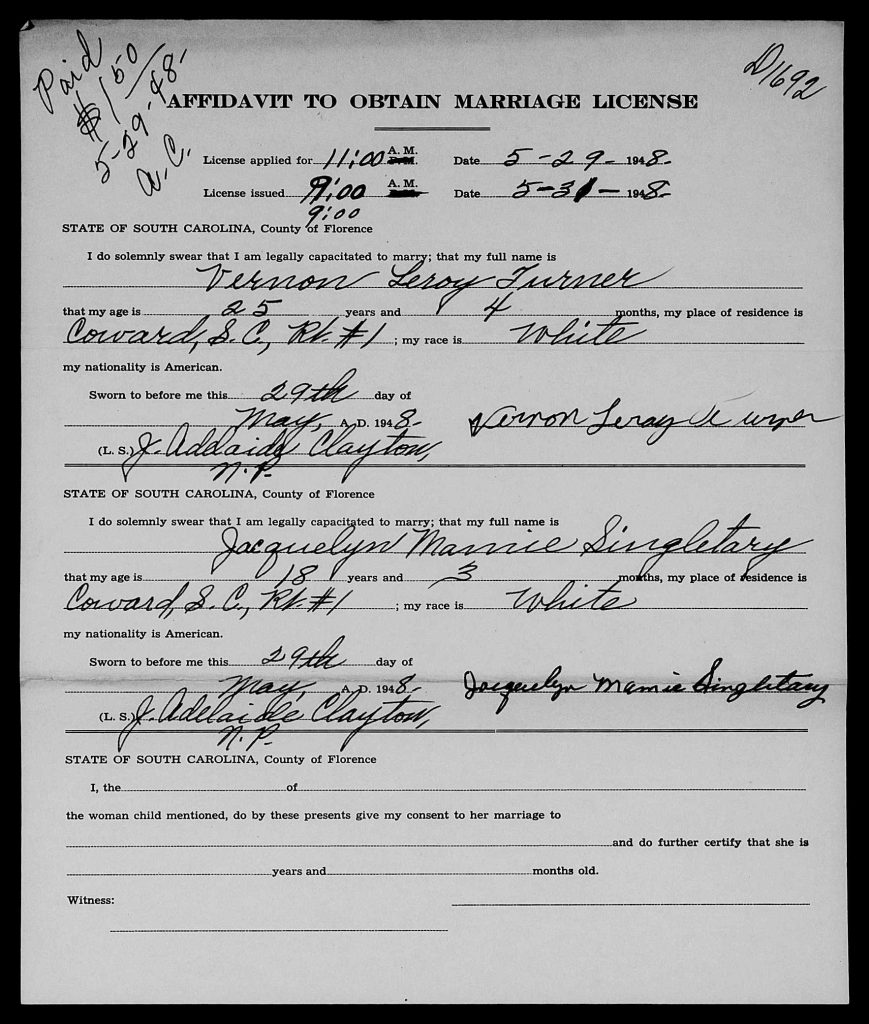 Paid
$1.50
5-29-48-
a. C.
D1692
AFFIDAVIT TO OBTAIN MARRIAGE LICENSE
License applied for 11:00 A. M. P. M. Date 5-29- 1948-
License issued 9:00 A. M. Date 5-31- 1948-
9:00
STATE OF SOUTH CAROLINA, County of Florence
I do solemnly swear that I am legally capacitated to marry; that my full name is
Vernon Leroy Turner
that my age is 25 years and 4 months, my place of residence is
Coward, S. C., Rt. #1 ; my race is White
my nationality is American.
Sworn to before me this 29th day of
May, A. D. 1948- Vernon Leroy Turner
(L. S.) J. Adelaide Clayton,
N. P.
STATE OF SOUTH CAROLINA, County of Florence
I do solemnly swear that I am legally capacitated to marry; that my full name is
Jacquelyn Mamie Singletary
that my age is 18 years and 3 months, my place of residence is
Coward, S. C., Rt. #1 ; my race is White
my nationality is American.
Sworn to before me this 29th day of
May, A. D. 1948- Jacquelyn Mamie Singletary
(L. S.) J. Adelaide Clayton,
N. P.
STATE OF SOUTH CAROLINA, County of Florence
I, the of
the woman child mentioned, do by these presents give my consent to her marriage to
and do further certify that she is
years and months old.
Witness: